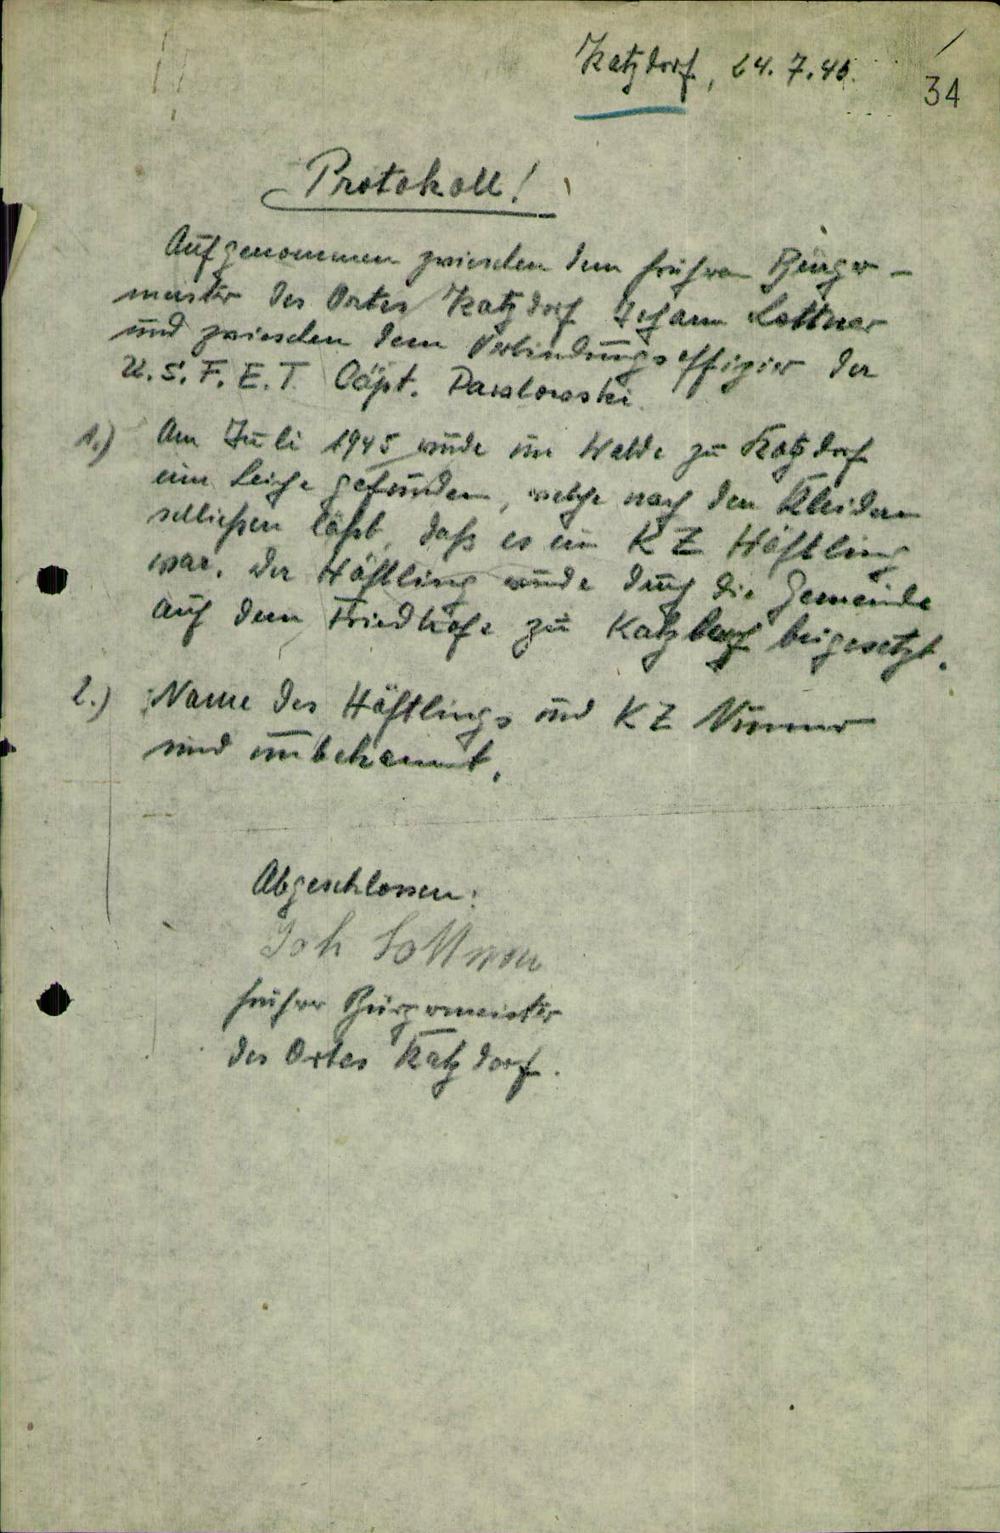 Katzdorf, 24.7.46.
34
Protokoll!
Aufgenommen zwieschen dem frühren Bürger-
meister des Ortes Katzdorf Johann Lottner
und zwieschen dem Verbindungsoffizier der
U.S.F.E.T. Cäpt. Pawlowski
1.) Am Juli 1945 wude im Walde zu Katzdorf
eine Leiche gefunden, welche nach den Kleidern
schließen läßt, daß es ein KZ Häftling
war. Der Häftling wude durch die Gemeinde
auf dem Friedhofe zu Katzdorf beigesetzt.
2.) Name des Häftlings und KZ Nummer
sind unbekannt.
Abgeschlossen:
Joh Lottner
früher Bürgermeister
des Ortes Katzdorf.